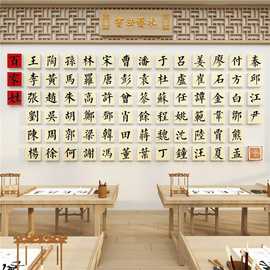 百家姓
王李張劉陳楊
陶黃趙吳周徐
孫馬朱胡郭何
林羅高鄭梁謝
宋唐許鄧韓馮
曹彭曾田董
潘袁蔡余蔣葉
于蘇程魏
呂盧任姚沈
姜崔譚范汪陸
廖石金鄒賈夏
付方白熊孟
秦邱江尹